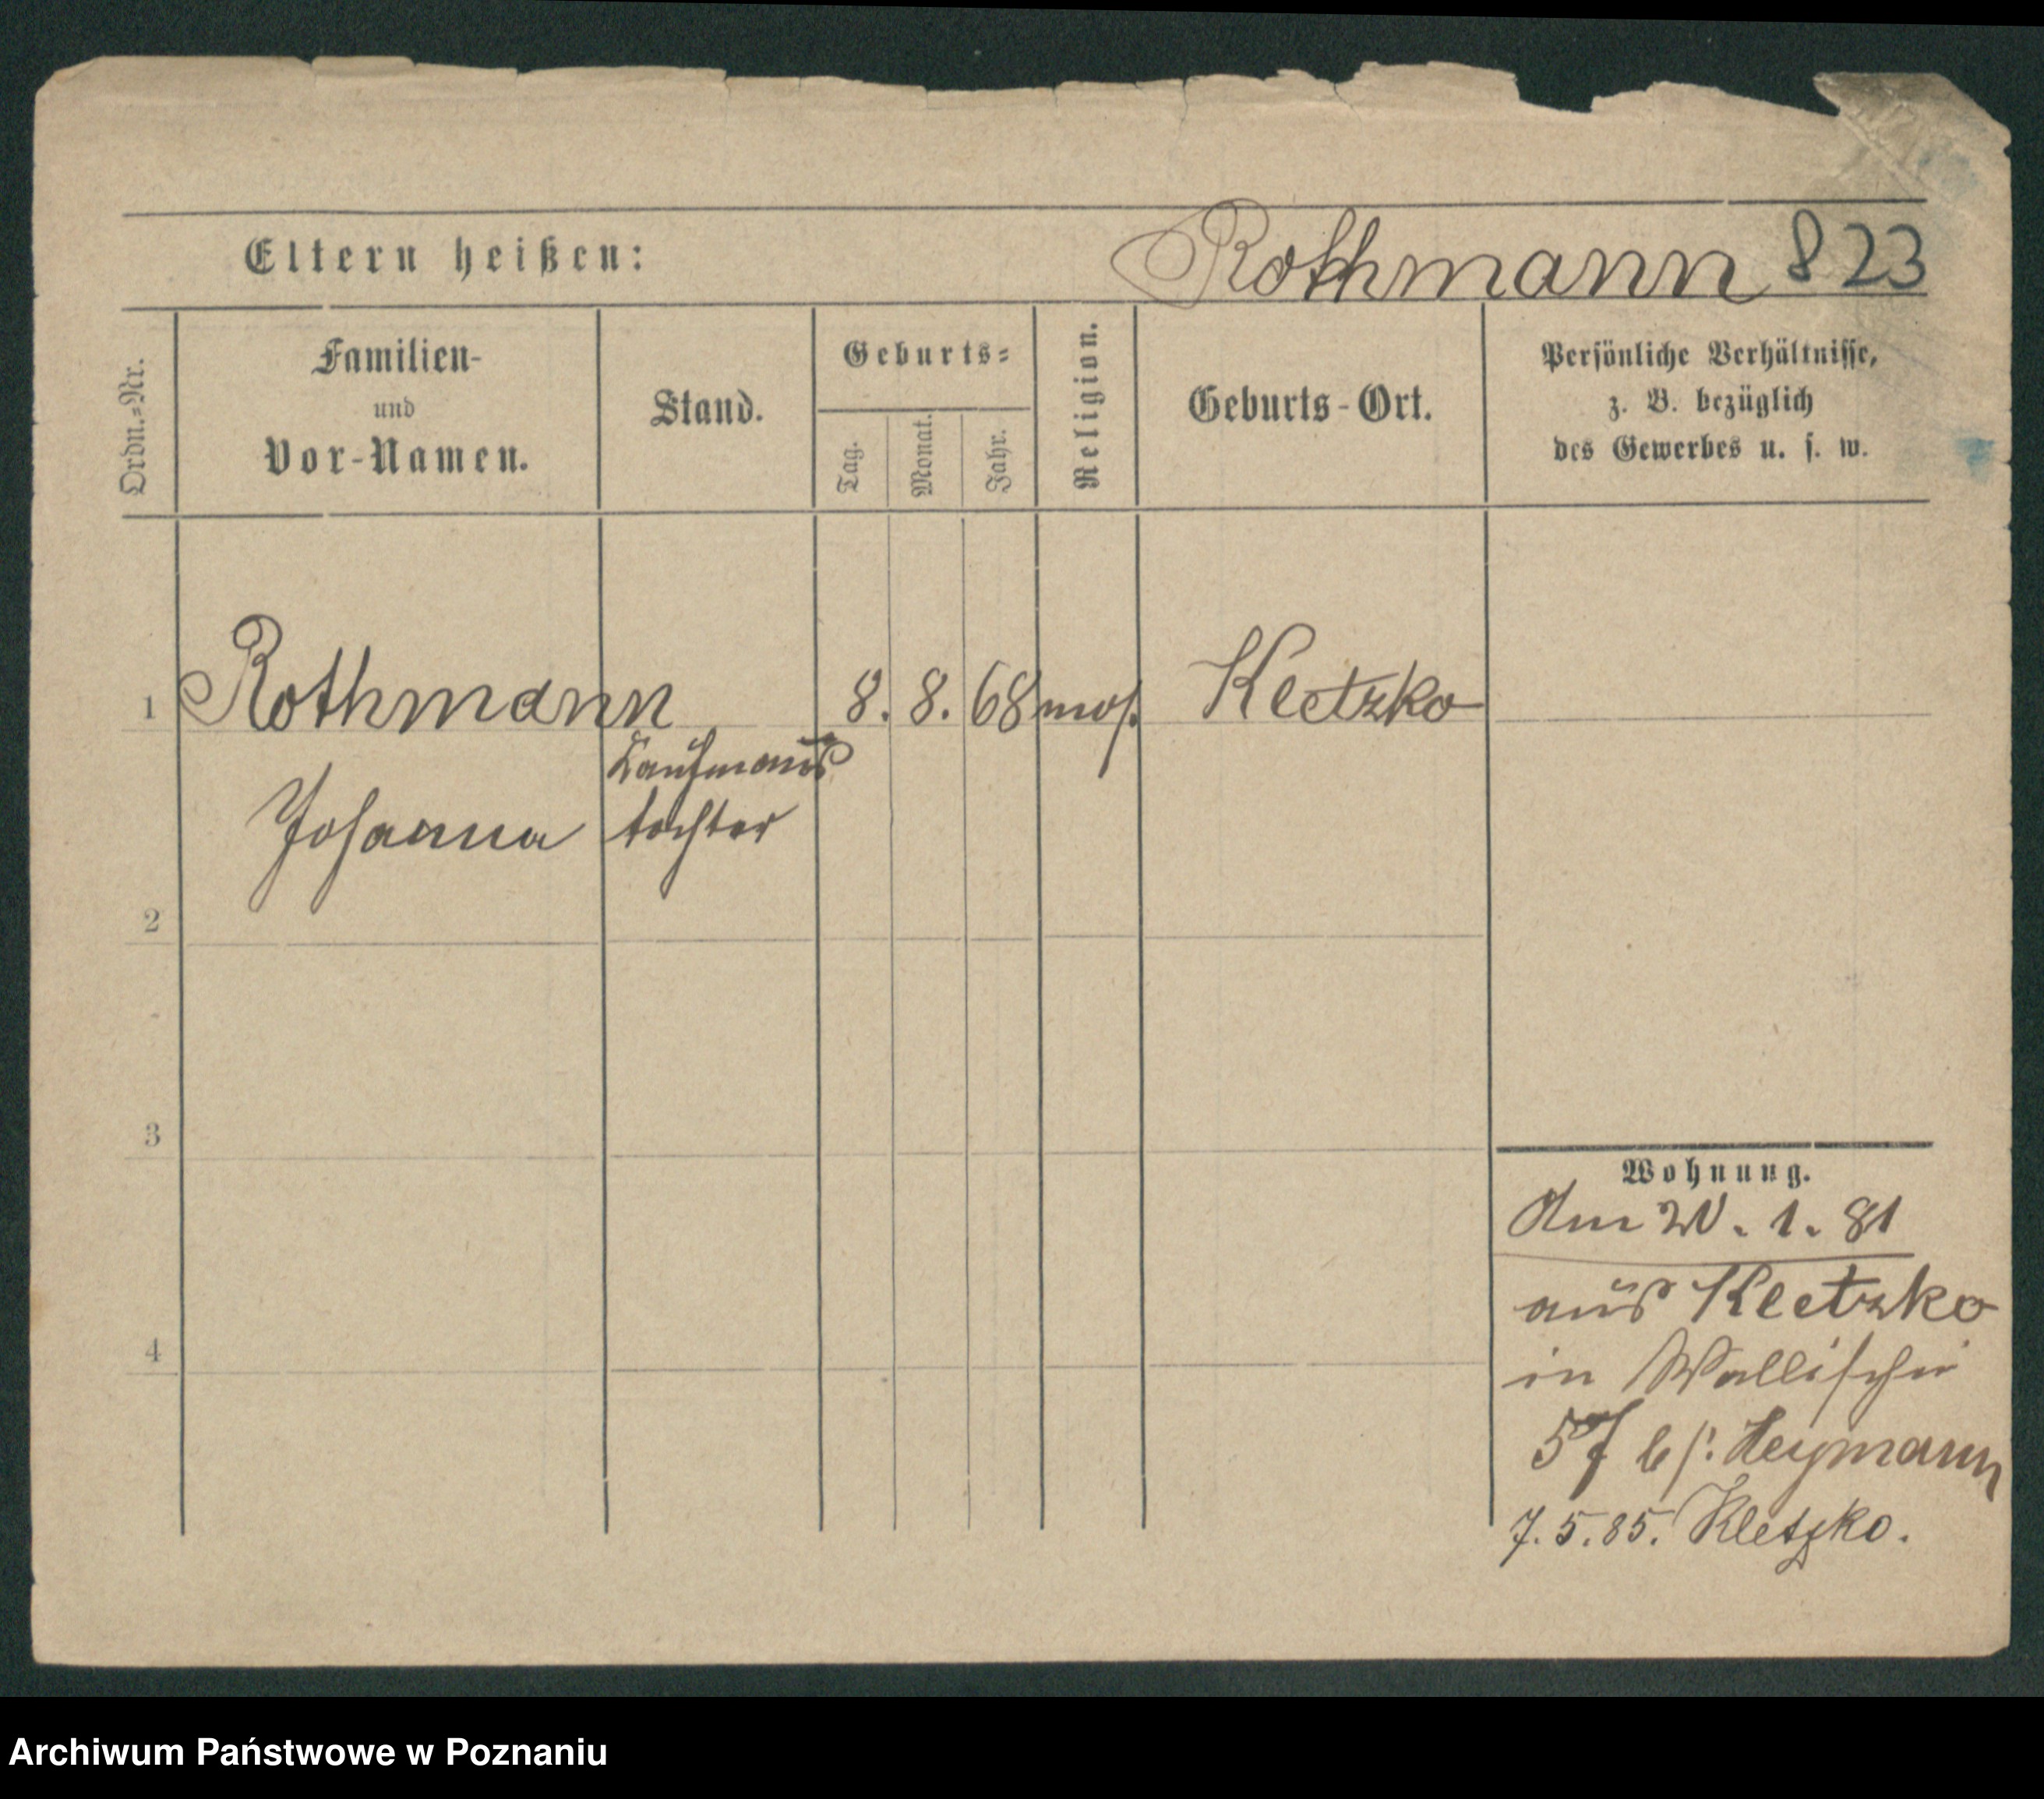 Eltern heißen: Rothmann 823
Ordn.=Nr.
Familien-
und
Vor-Namen.
Stand.
Geburts=
Tag.
Monat.
Jahr.
Religion.
Geburts-Ort.
Persönliche Verhältnisse,
z. B. bezüglich
des Gewerbes u. s. w.
1 Rothmann 8. 8. 68 mos. Kletzko
Kaufmanns
Johanna tochter
2
3
Wohnung.
Am 20. 1. 81
aus Kletzko
4
in Wallischei
57 bs: Heymann
7. 5. 85. Kletzko.
Archiwum Państwowe w Poznaniu